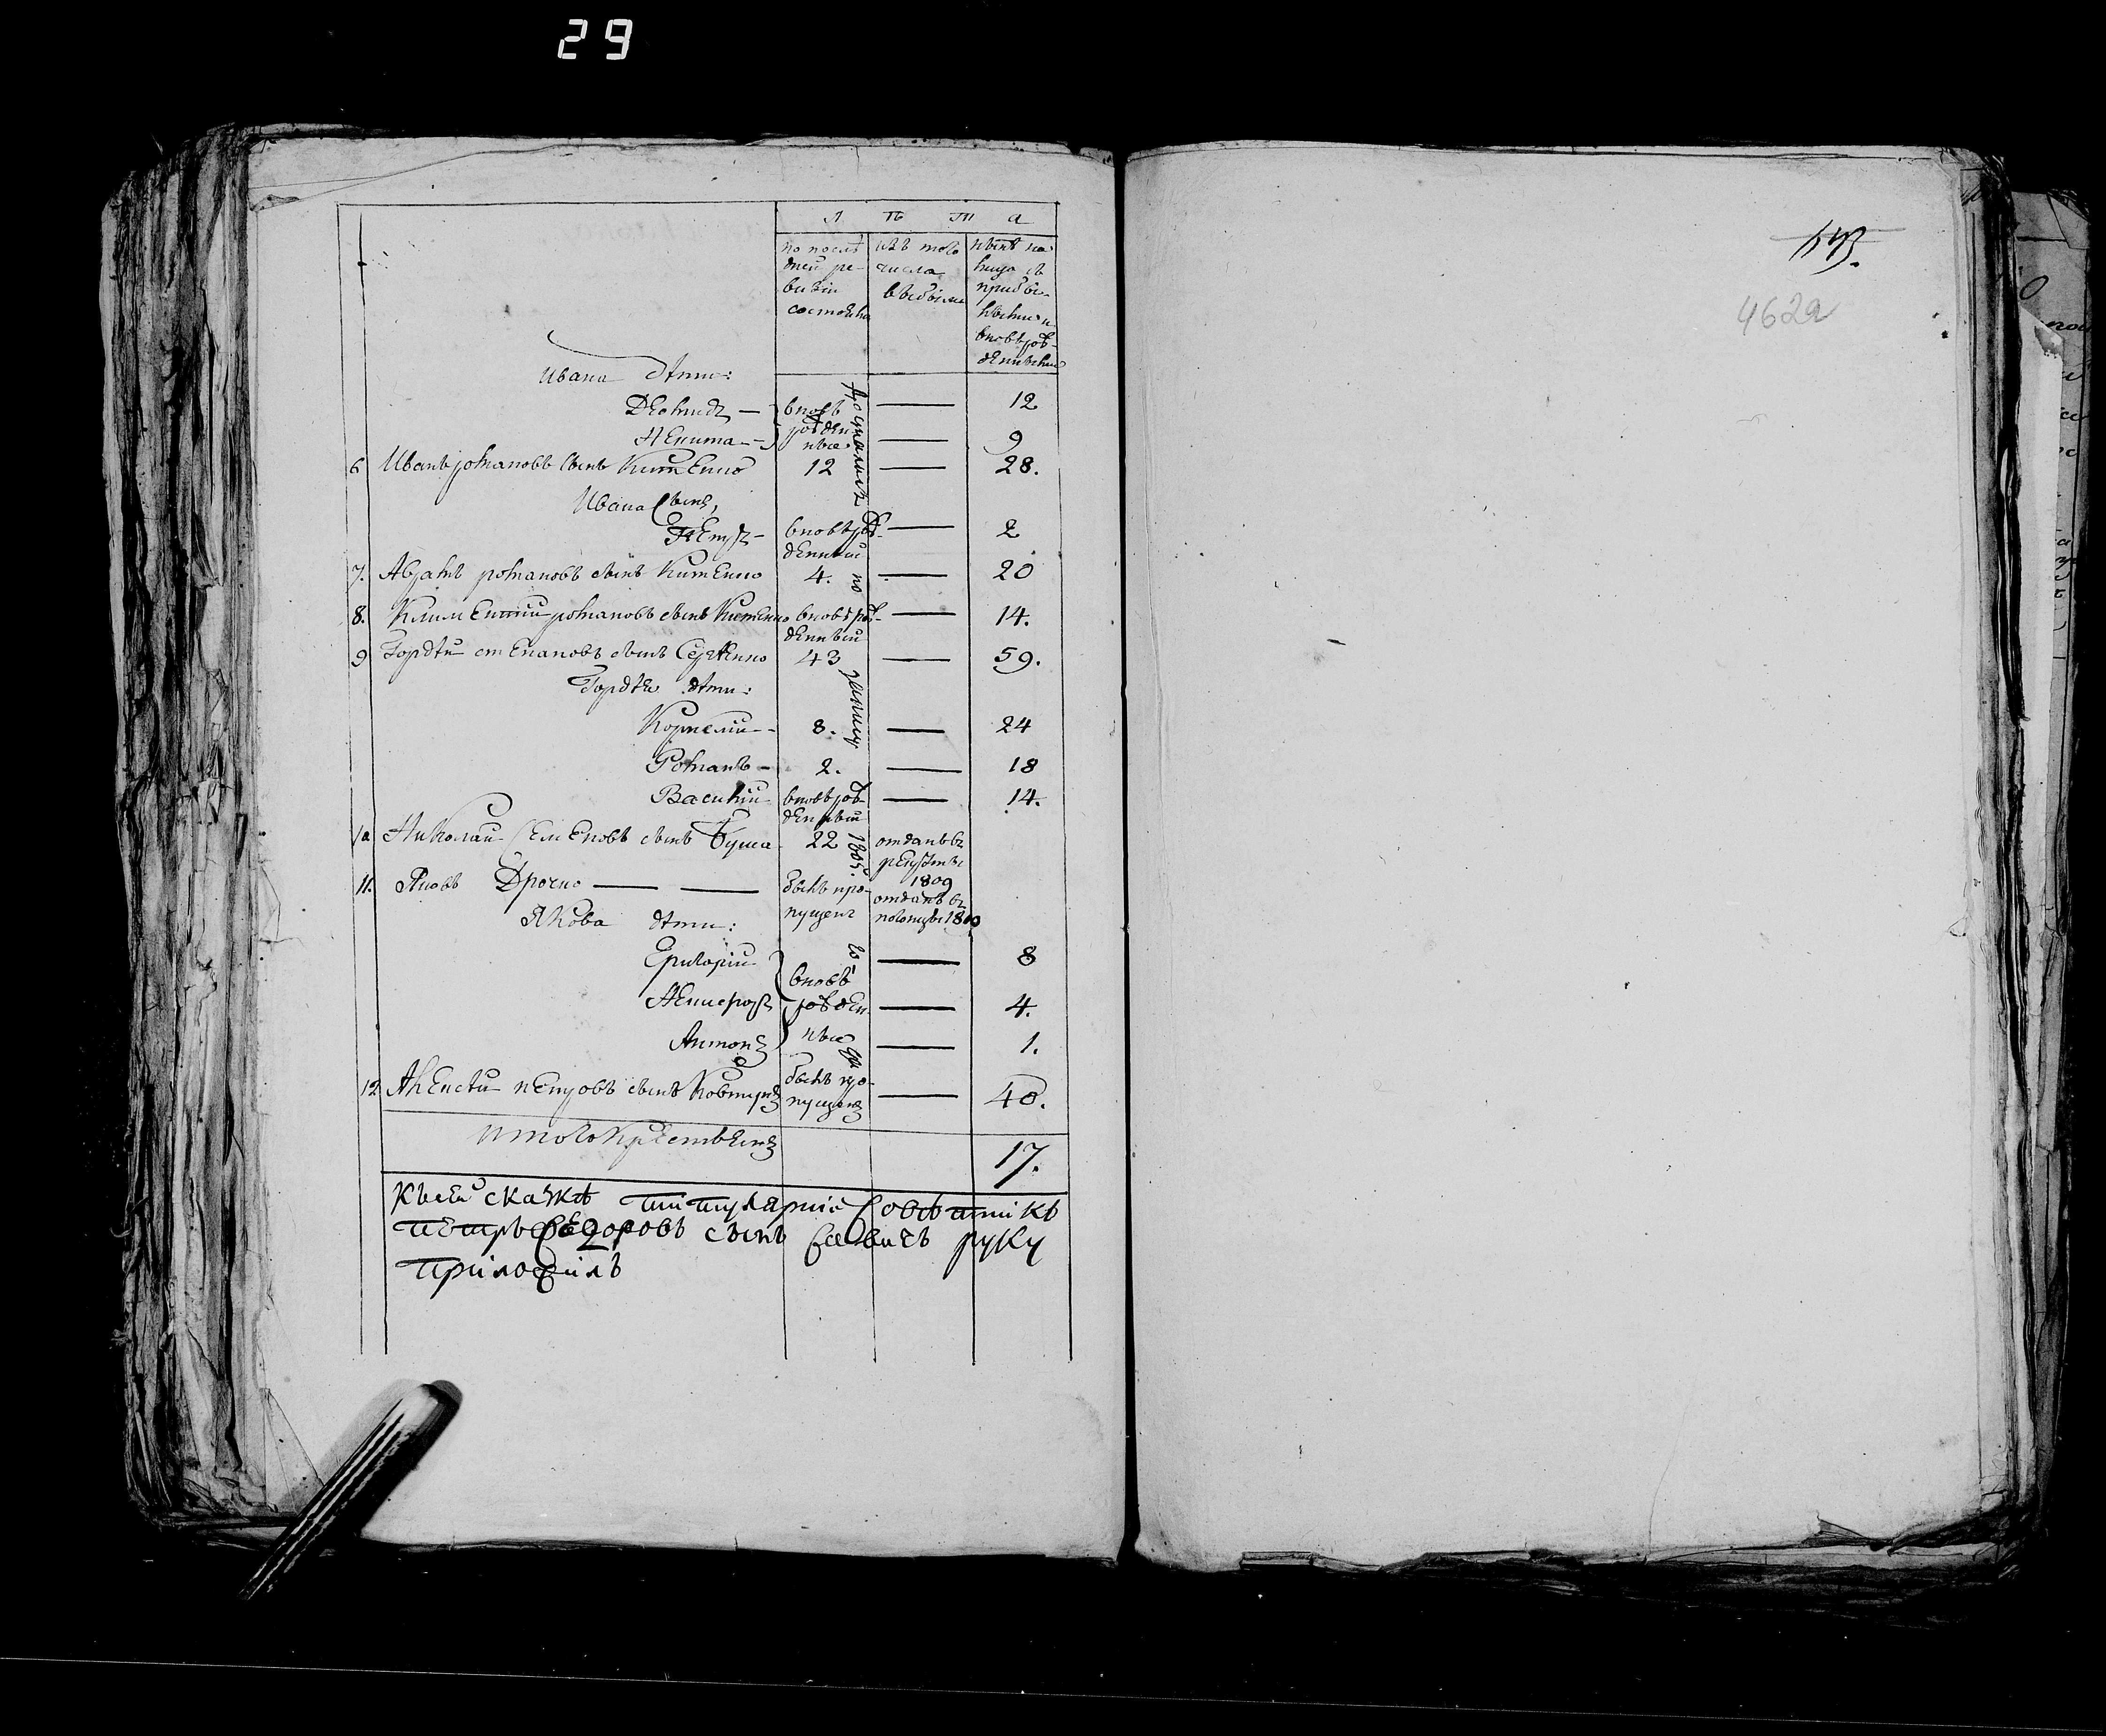 29
Л ѣ т а
по послѣ
дней ре-
визіи
состояло
изъ того
числа
выбыло
нынѣ на
лицо съ
прибы-
лыми и
вновь рож-
денными
Ивана дѣти:
Демидъ — вновь рожден-ные — 12
Никита — — 9
6 Иванъ романовъ сынъ Китенко 12 — 28.
Ивана сынъ,
Петръ — вновь рож-денный — 2
7. Абрамъ романовъ сынъ Китенко 4. — 20
8. Климентий романовъ сынъ Китенко вновь рож-денный — 14.
9 Гордѣй степановъ сынъ Сергѣенко 43 — 59.
Гордѣя дѣти:
Корнелий — 8. — 24
Романъ — 2. — 18
Василий вновь рож-денный — 14.
10 Николай Семеновъ сынъ Буша 22 отданъ въ рекруты 1809
11. Яковъ Дрочко — — былъ про-пущенъ отданъ въ 1809
Якова дѣти:
Григорій вновь рожден-ные — 8
— 4.
Антонъ — 1.
12 Алексѣй петровъ сынъ былъ про-пущенъ — 40.
1805 года
итого
17.
Къ сей скаскѣ титулярний Совѣтникъ
петръ Федоровъ сынъ руку
приложилъ
462а